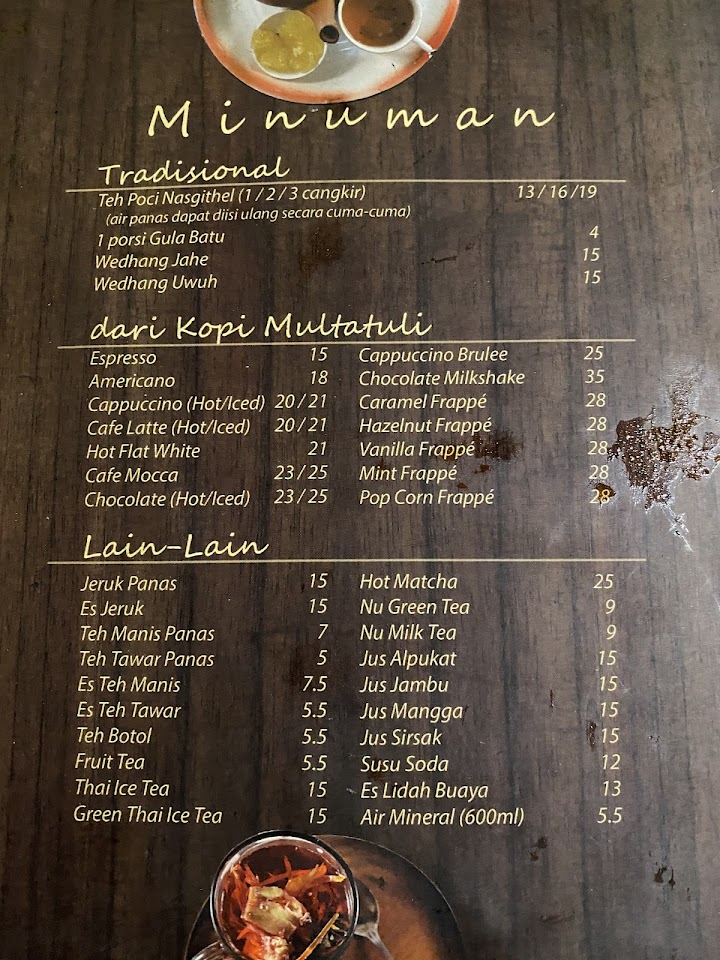 Minuman
Tradisional
Teh Poci Nasgithel (1 / 2 / 3 cangkir) 13 / 16 /19
(air panas dapat diisi ulang secara cuma-cuma)
1 porsi Gula Batu 4
Wedhang Jahe 15
Wedhang Uwuh 15
dari Kopi Multatuli
Espresso 15 Cappuccino Brulee 25
Americano 18 Chocolate Milkshake 35
Cappuccino (Hot/Iced) 20 / 21 Caramel Frappé 28
Cafe Latte (Hot/Iced) 20 / 21 Hazelnut Frappé 28
Hot Flat White 21 Vanilla Frappé 28
Cafe Mocca 23 / 25 Mint Frappé 28
Chocolate (Hot/Iced) 23 / 25 Pop Corn Frappé 28
Lain-Lain
Jeruk Panas 15 Hot Matcha 25
Es Jeruk 15 Nu Green Tea 9
Teh Manis Panas 7 Nu Milk Tea 9
Teh Tawar Panas 5 Jus Alpukat 15
Es Teh Manis 7.5 Jus Jambu 15
Es Teh Tawar 5.5 Jus Mangga 15
Teh Botol 5.5 Jus Sirsak 15
Fruit Tea 5.5 Susu Soda 12
Thai Ice Tea 15 Es Lidah Buaya 13
Green Thai Ice Tea 15 Air Mineral (600ml) 5.5